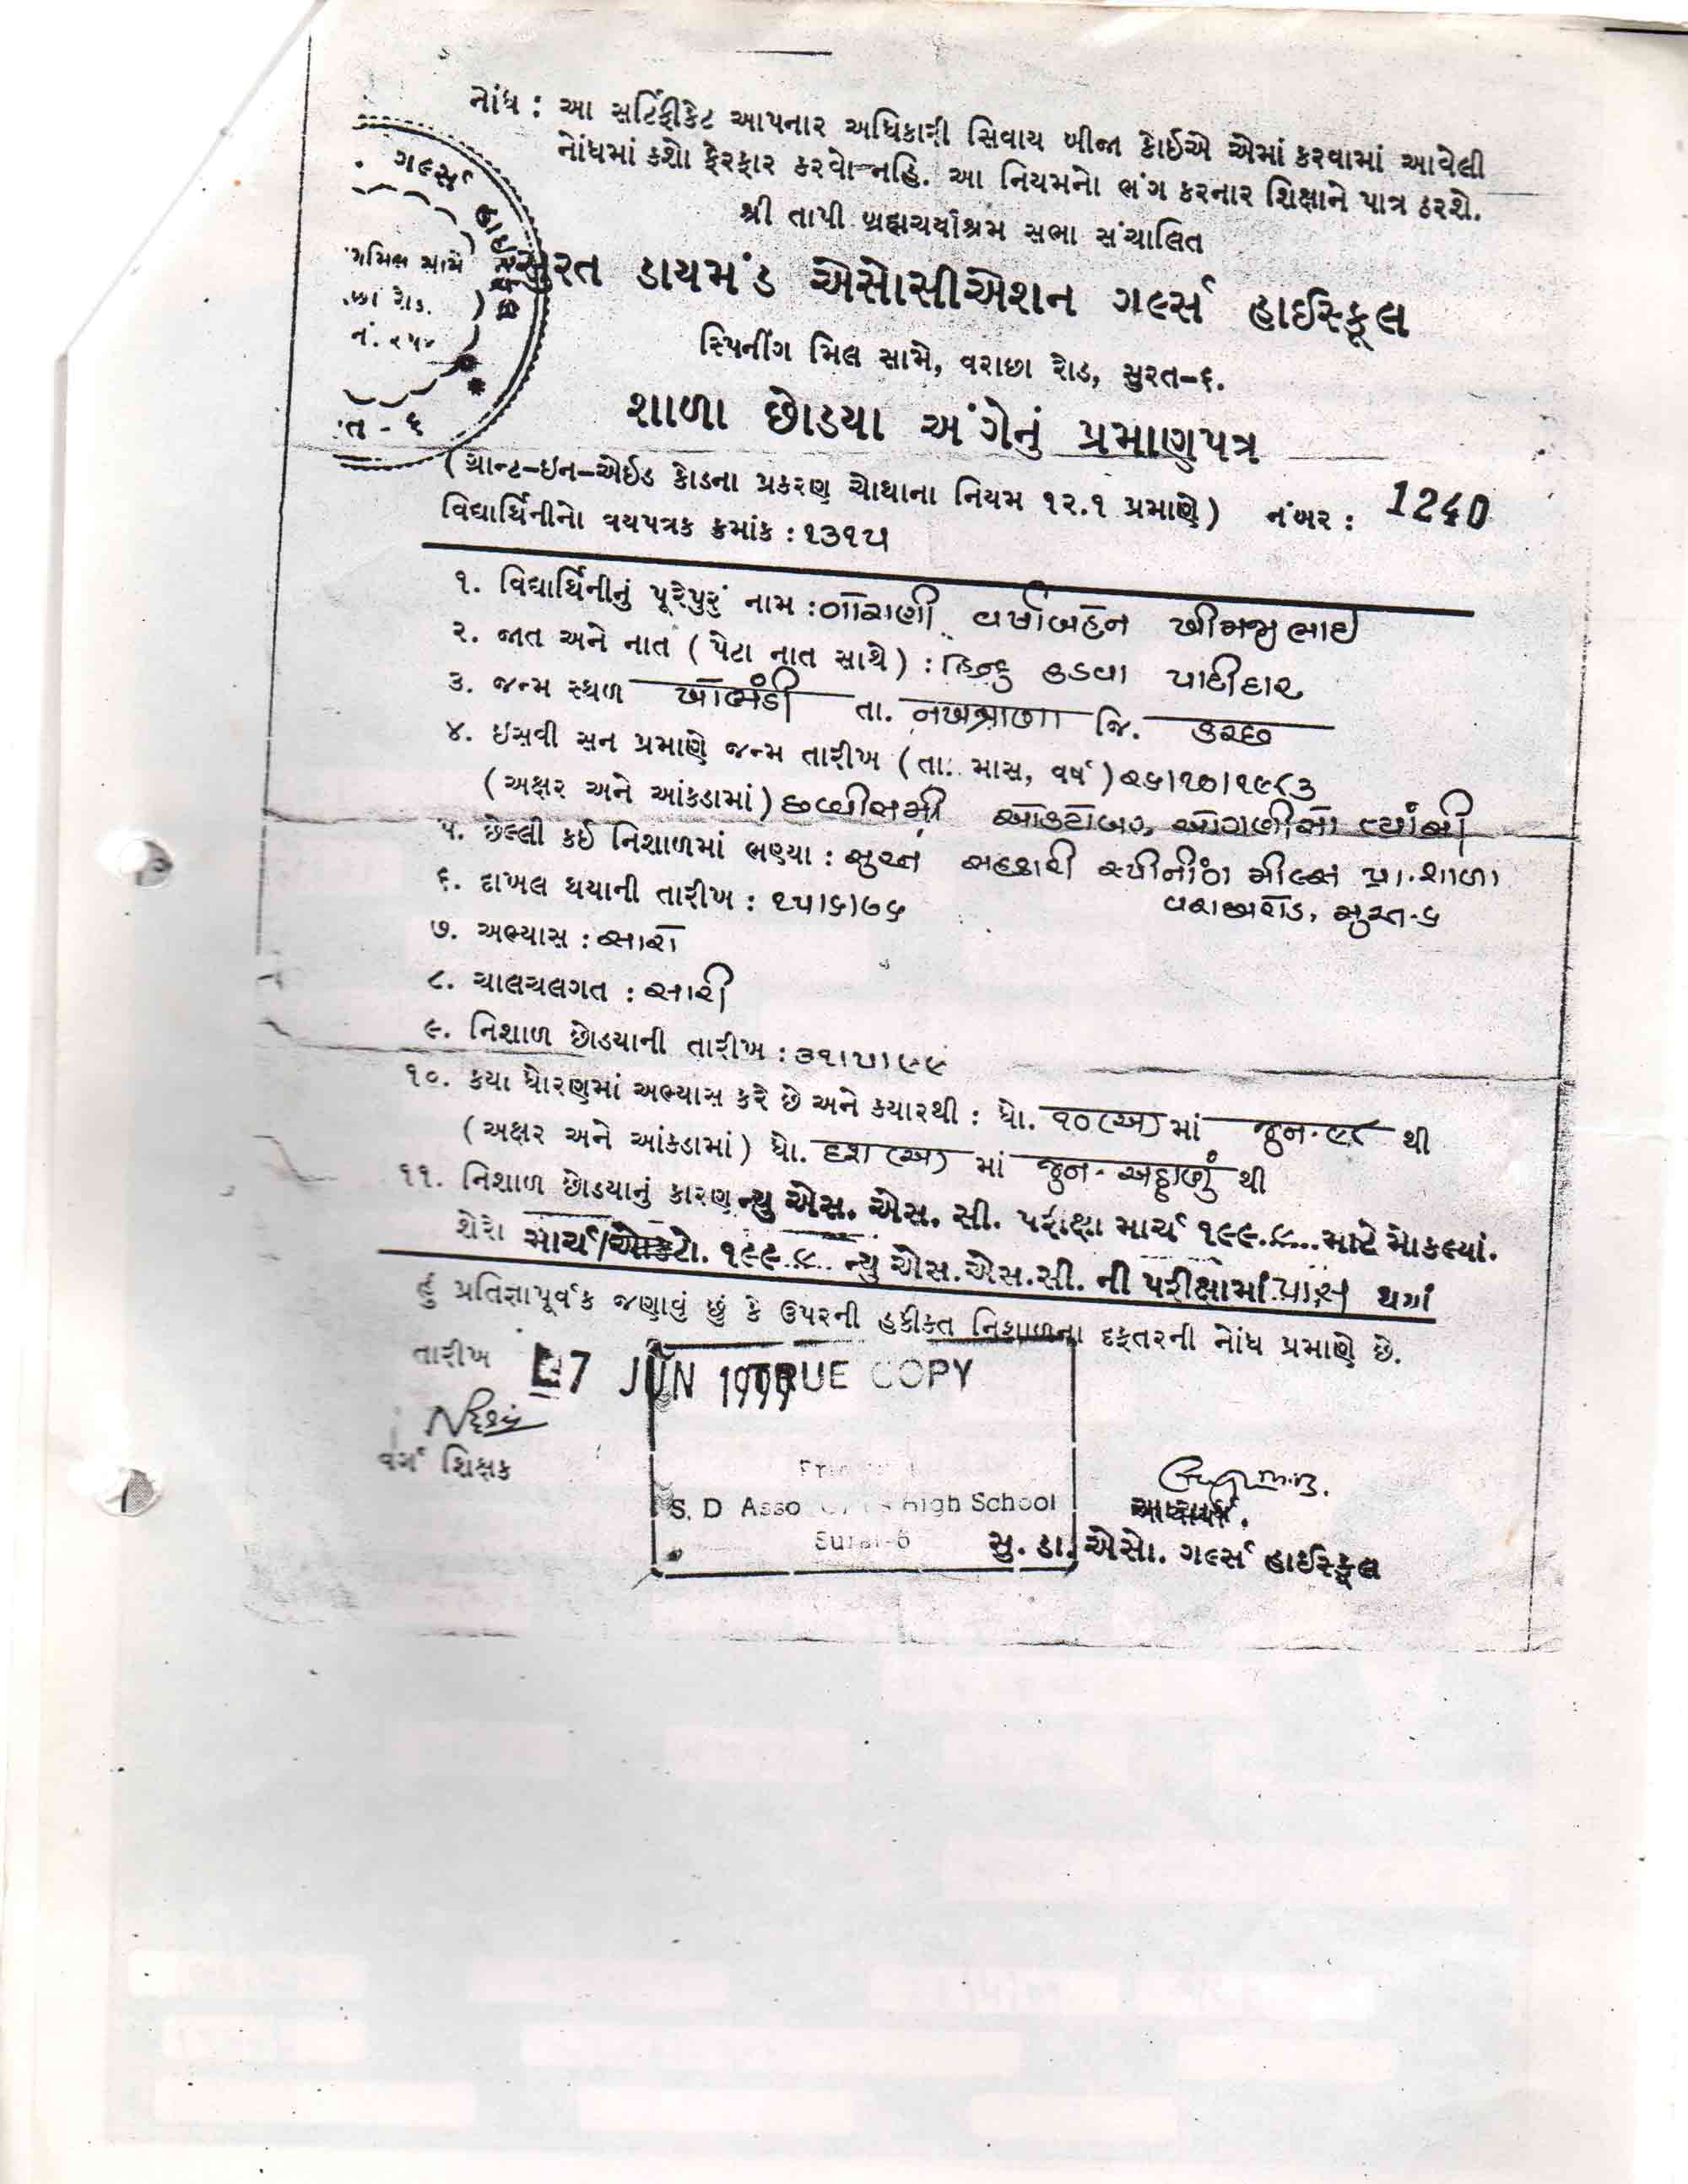 નોંધ : આ સર્ટિફીકેટ આપનાર અધિકારી સિવાય બીજા કોઈએ એમાં કરવામાં આવેલી
નોંધમાં કશો ફેરફાર કરવો નહિ. આ નિયમનો ભંગ કરનાર શિક્ષાને પાત્ર ઠરશે.
શ્રી તાપી બ્રહ્મચર્યાશ્રમ સભા સંચાલિત
ગર્લ્સ હાઈસ્કૂલ
સુરત ડાયમંડ એસોસીએશન ગર્લ્સ હાઈસ્કૂલ
સ્પિનીંગ મિલ સામે, વરાછા રોડ, સુરત-૬.
શાળા છોડયા અંગેનું પ્રમાણપત્ર
(ગ્રાન્ટ-ઇન-એઈડ કોડના પ્રકરણ ચોથાના નિયમ ૧૨.૧ પ્રમાણે) નંબર : 1240
વિદ્યાર્થિનીનો વયપત્રક ક્રમાંક : ૧૩૧૫
૧. વિદ્યાર્થિનીનું પૂરેપુરું નામ : વર્ષાબહેન ખીમજીભાઈ
૨. જાત અને નાત (પેટા નાત સાથે) : હિન્દુ કડવા પાટીદાર
૩. જન્મ સ્થળ ખોંભડી તા. નખત્રાણા જિ. કચ્છ
૪. ઇસવી સન પ્રમાણે જન્મ તારીખ (તા. માસ, વર્ષ) ૨૬/૧૦/૧૯૮૩
(અક્ષર અને આંકડામાં) છવ્વીસમી ઓક્ટોબર, ઓગણીસો ત્યાંસી
૫. છેલ્લી કઈ નિશાળમાં ભણ્યા : સુરત સહકારી સ્પીનીંગ મીલ્સ પ્રા. શાળા
વરાછારોડ, સુરત-૬
૬. દાખલ થયાની તારીખ :
૭. અભ્યાસ : સારો
૮. ચાલચલગત : સારી
૯. નિશાળ છોડયાની તારીખ : ૩૧/૫/૯૯
૧૦. કયા ધોરણમાં અભ્યાસ કરે છે અને કયારથી : ધો. ૧૦(અ) માં જુન-૯૮ થી
(અક્ષર અને આંકડામાં) ધો. દશ (અ) માં જુન-અઠ્ઠાણું થી
૧૧. નિશાળ છોડયાનું કારણ ન્યુ એસ. એસ. સી. પરીક્ષા માર્ચ ૧૯૯.૯...માટે મોકલ્યાં.
શેરો માર્ચ/ઓક્ટો. ૧૯૯.૯.. ન્યુ એસ.એસ.સી. ની પરીક્ષામાં પાસ થયાં
હું પ્રતિજ્ઞાપૂર્વક જણાવું છું કે ઉપરની હકીકત નિશાળના દફતરની નોંધ પ્રમાણે છે.
તારીખ 7 JUN 1999
TRUE COPY
વર્ગ શિક્ષક
S. D Asso High School
Surat-6
આચાર્ય.
સુ. ડા. એસો. ગર્લ્સ હાઈસ્કૂલ